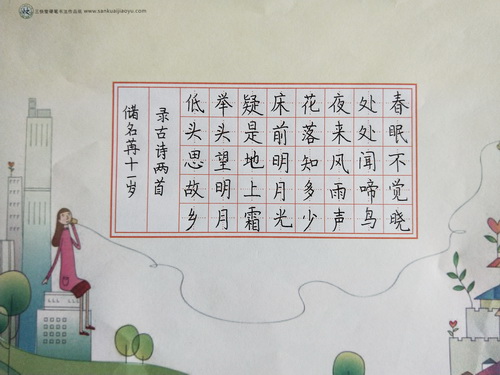 www.sankuaijiaoyu.com
春眠不觉晓
处处闻啼鸟
夜来风雨声
花落知多少
床前明月光
疑是地上霜
举头望明月
低头思故乡
录古诗两首
储名苒十一岁